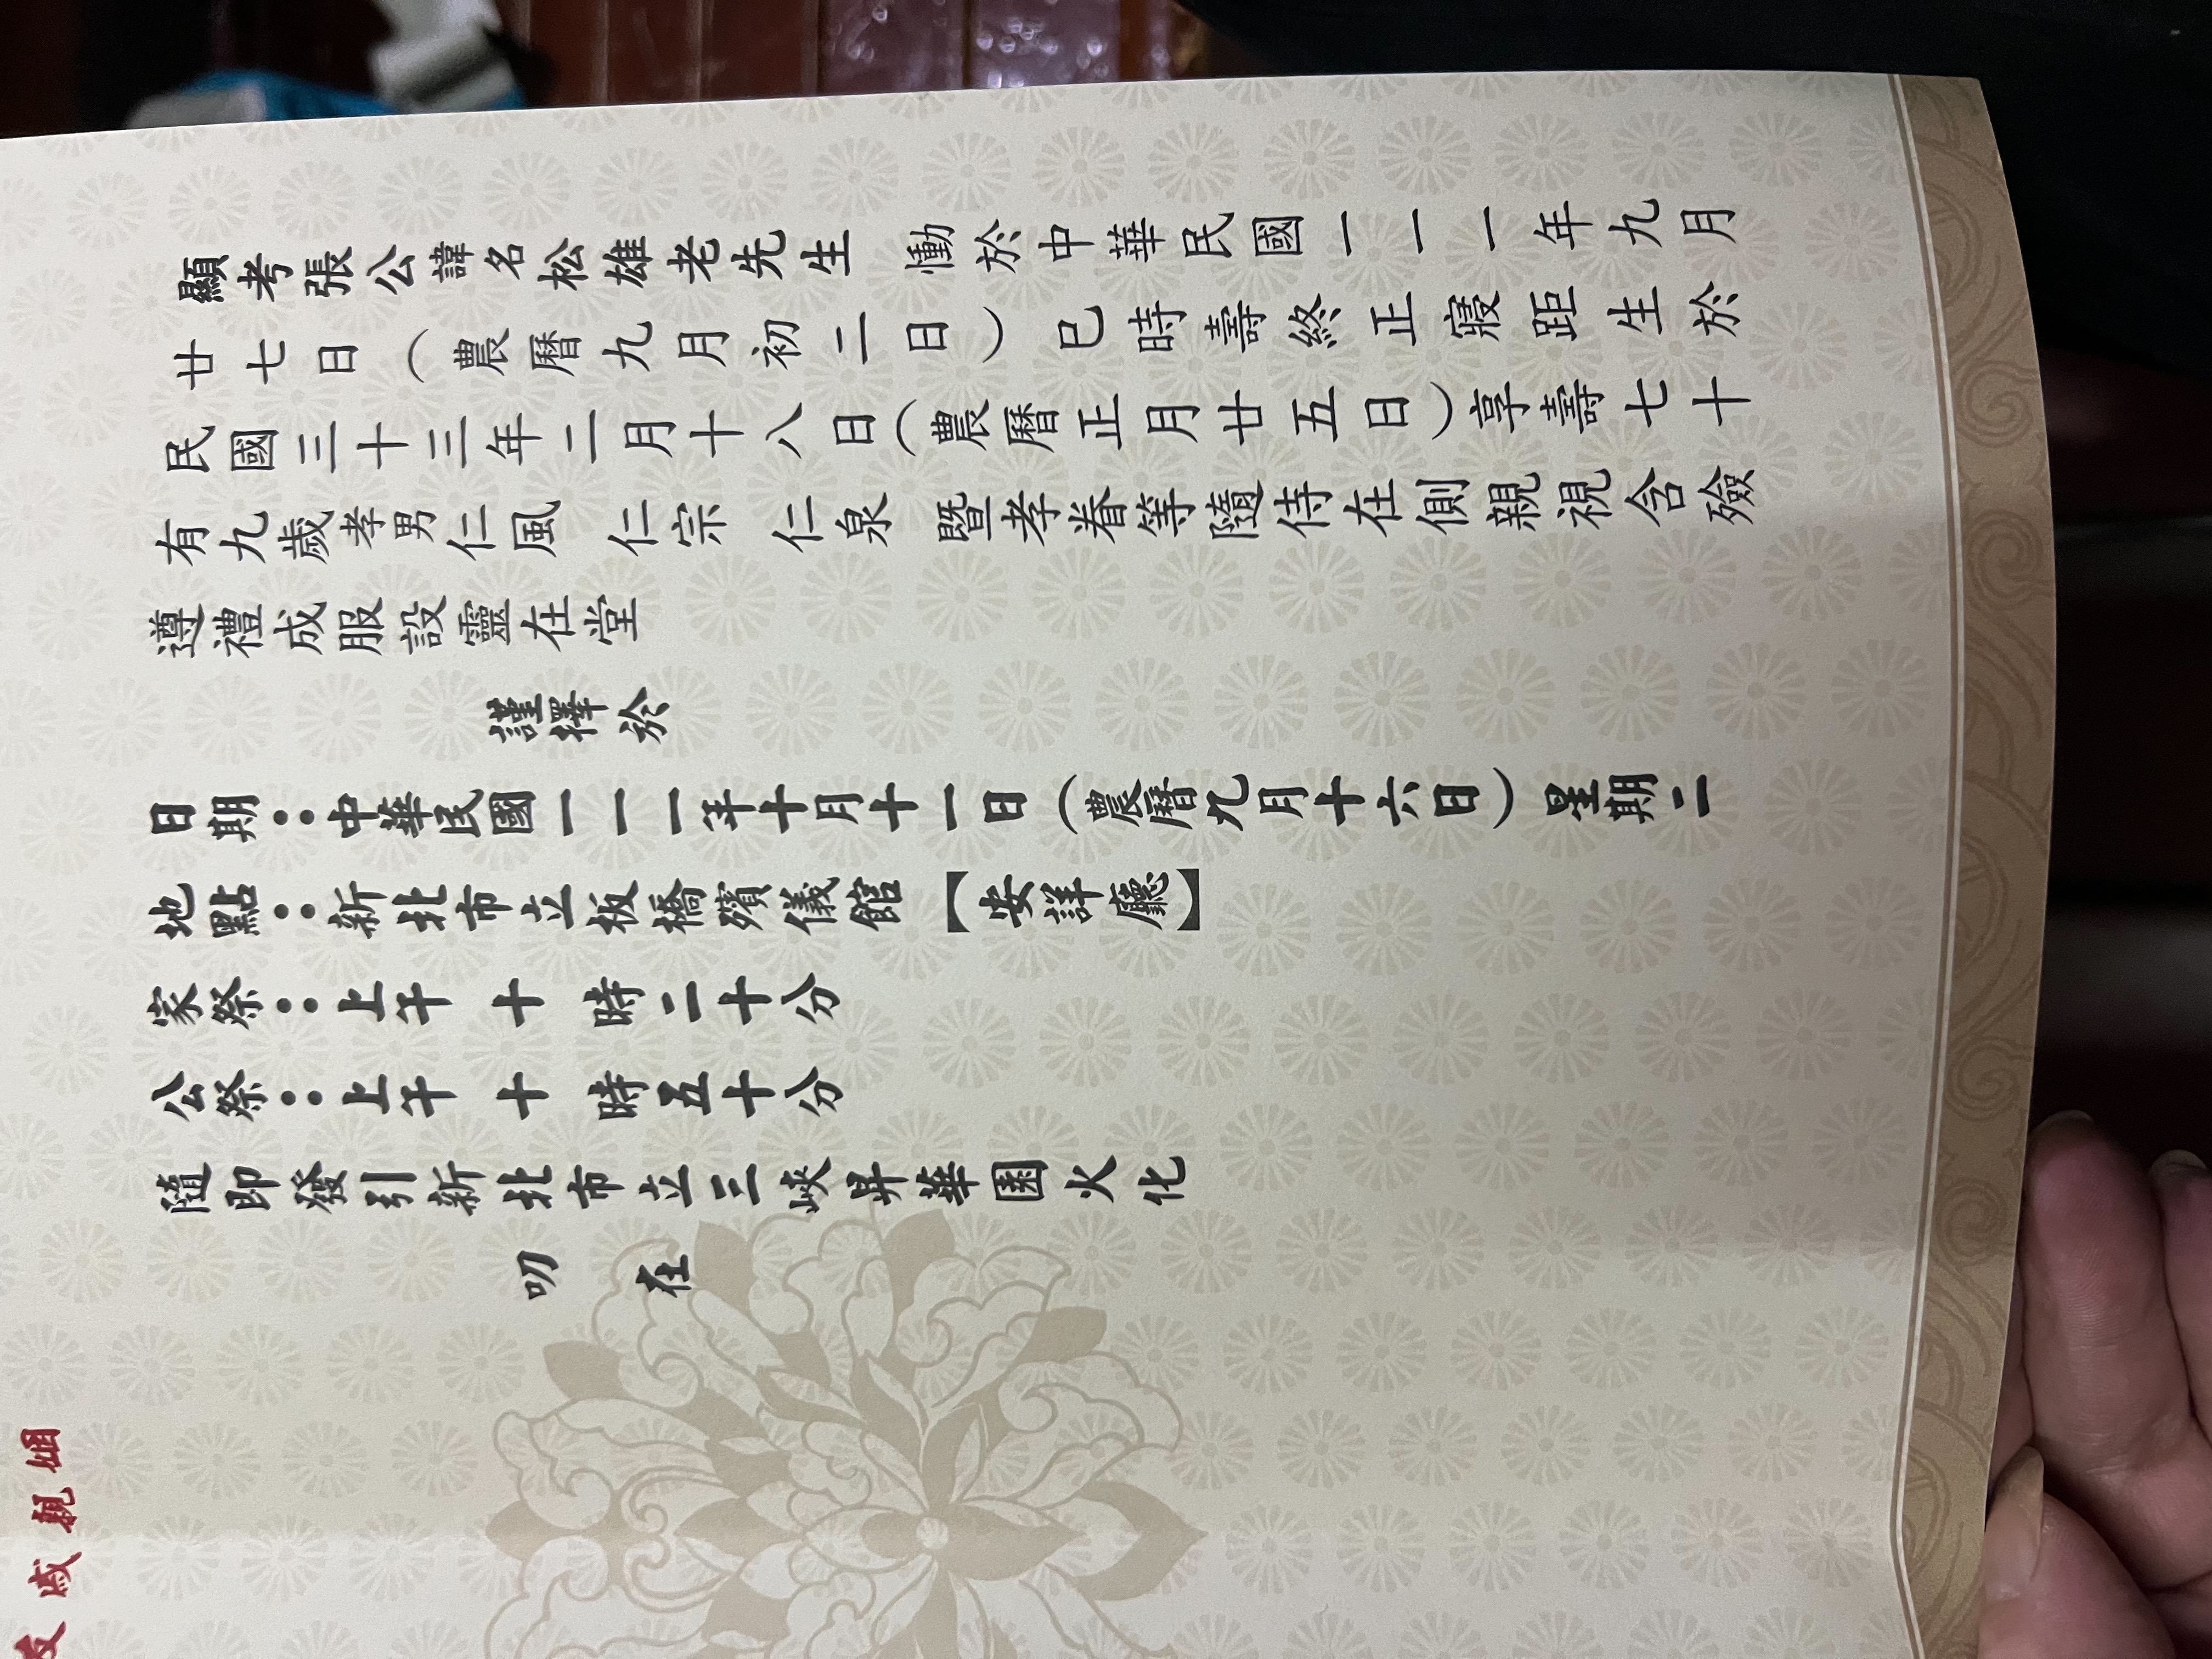 顯考張公諱名松雄老先生 慟於中華民國一一一年九月
廿七日（農曆九月初二日）巳時壽終正寢距生於
民國三十三年二月十八日（農曆正月廿五日）享壽七十
有九歲孝男仁風 仁宗 仁泉 暨孝眷等隨侍在側親視含殮
遵禮成服設靈在堂
謹擇於
日期：中華民國一一一年十月十一日（農曆九月十六日）星期二
地點：新北市立板橋殯儀館【安詳廳】
家祭：上午 十 時二十分
公祭：上午 十 時五十分
隨即發引新北市立三峽昇華園火化
叨 在
姻親戚友